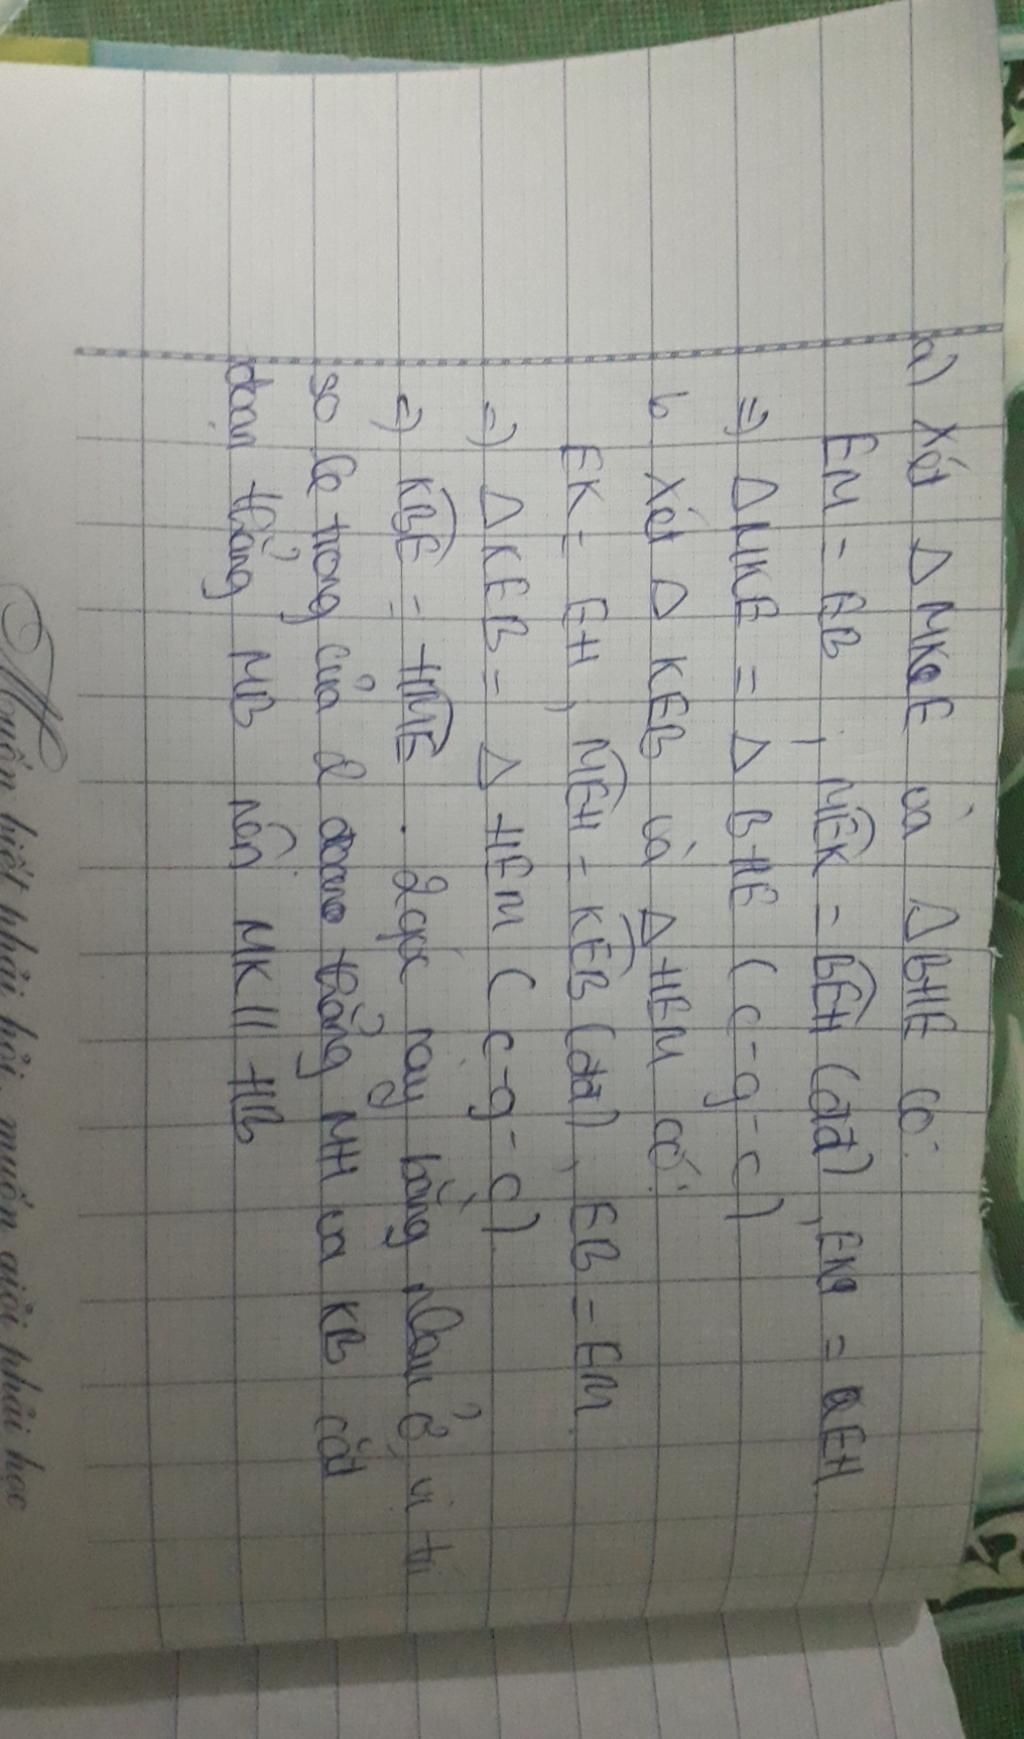 a) Xét Δ MKE và Δ BHE có:
EM = EB , MEK = BEH (đđ) , EK = EH
=> Δ MKE = Δ BHE (c-g-c)
b Xét Δ KEB và Δ HEM có:
EK = EH , MEH = KEB (đđ) , EB = EM
=> Δ KEB = Δ HEM (c-g-c)
=> KBE = HME . 2 góc này bằng nhau ở vị trí
so le trong của 2 đoạn thẳng MH và KB cắt
đoạn thẳng MB nên MK || HB
Muốn biết phải hỏi, muốn giỏi phải học